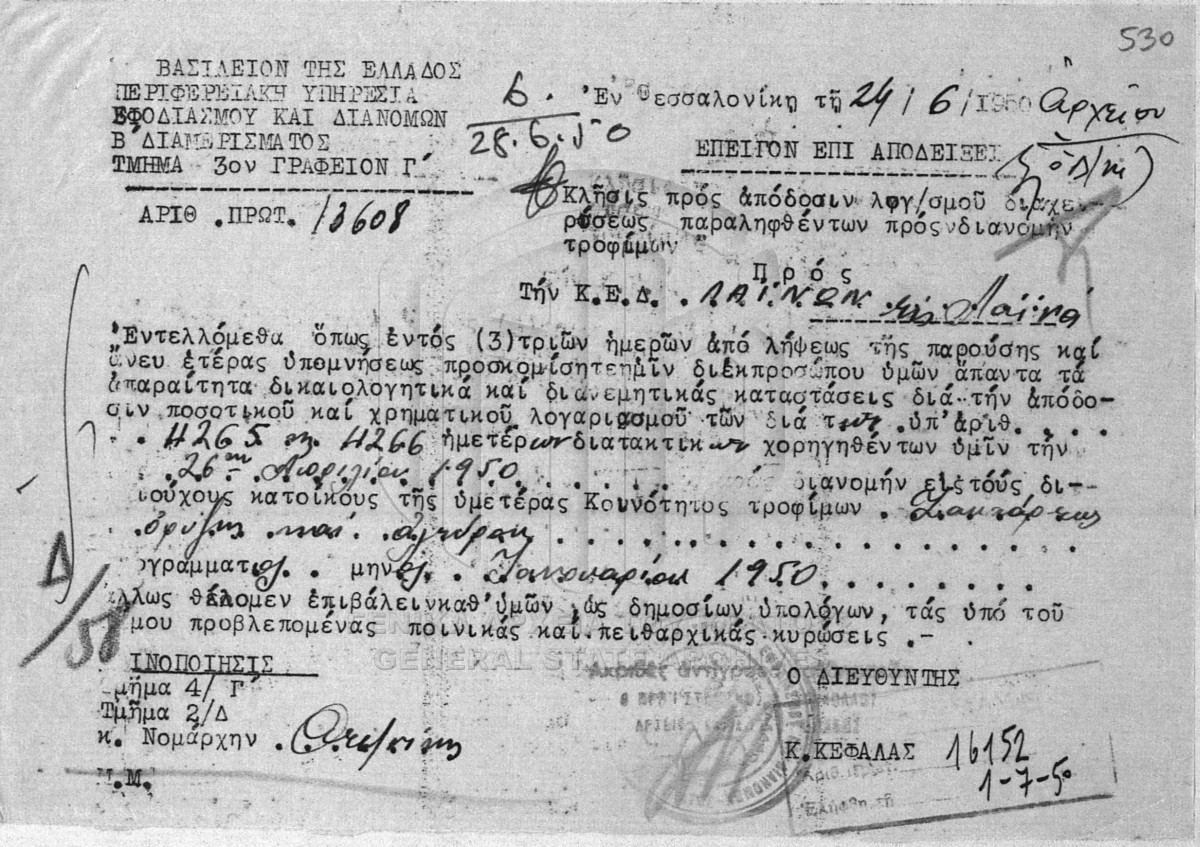 530
ΒΑΣΙΛΕΙΟΝ ΤΗΣ ΕΛΛΑΔΟΣ
ΠΕΡΙΦΕΡΕΙΑΚΗ ΥΠΗΡΕΣΙΑ
ΕΦΟΔΙΑΣΜΟΥ ΚΑΙ ΔΙΑΝΟΜΩΝ
Β΄ΔΙΑΜΕΡΙΣΜΑΤΟΣ
ΤΜΗΜΑ 3ον ΓΡΑΦΕΙΟΝ Γ΄
ΑΡΙΘ .ΠΡΩΤ. 13608
28.6.50
Ἐν Θεσσαλονίκῃ τῇ 24/6/1950
Ἀρχεῖον
ΕΠΕΙΓΟΝ ΕΠΙ ΑΠΟΔΕΙΞΕΙ
Κλῆσις πρός ἀπόδοσιν λογ/σμοῦ διαχει-
ρίσεως παραληφθέντων πρόςνδιανομήν
τροφίμων "
Πρός
Τήν Κ.Ε.Δ. . ΛΑΪΝΩΝ Λαϊνά
Ἐντελλόμεθα ὅπως ἐντός (3)τριῶν ἡμερῶν ἀπό λήψεως τῆς παρούσης καί
ἄνευ ἑτέρας ὑπομνήσεως προσκομίσητεἡμῖν διέκπροσώπου ὑμῶν ἅπαντα τά
ἀπαραίτητα δικαιολογητικά καί διανεμητικάς καταστάσεις διά τήν ἀπόδο-
σιν ποσοτικοῦ καί χρηματικοῦ λογαριασμοῦ τῶν διά τῶν .ὑπ'ἀριθ. . . .
. . 4265 4266 ἡμετέρωνδιατακτικῶν χορηγηθέντων ὑμῖν τήν
. 26ην Ἀπριλίου 1950 . . . . πρός διανομήν εἰςτούς δι-
ιούχους κατοίκους τῆς ὑμετέρας Κοινότητος τροφίμων . Σακχάρεως
. ὀρύζης καί ἀλεύρου . . . . . . . . . . . . . . . .
ογραμματος . μηνός . Ἰανουαρίου 1950. . . . . . . .
λλως θέλομεν ἐπιβάλεινκαθ'ὑμῶν ,ὡς δημοσίων ὑπολόγων, τάς ὑπό τοῦ
μου προβλεπομένας ποινικάς καί πειθαρχικάς κυρώσεις .-
Δ/50
GENERAL STATE ARCHIVES
ΙΝΟΠΟΙΗΣΙΣ
μῆμα 4/ Γ΄
Τμῆμα 2/Δ
κ. Νομάρχην .
.Μ.
Ἀκριβές ἀντίγραφον
Ο ΔΙΕΥΘΥΝΤΗΣ
Κ.ΚΕΦΑΛΑΣ
16152
1-7-50
Ἐλήφθη τῇ